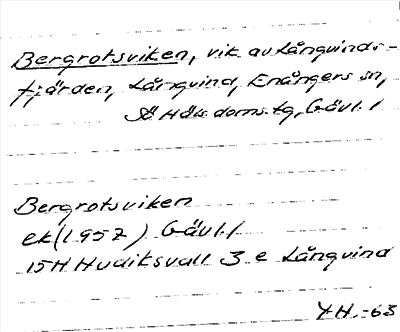 Bergrotsviken, vik av Långvinds-
fjärden, Långvind, Enångers sn,
Sö Häls. doms.tg, Gävl. l
Bergrotsviken
ek (1957) Gävl. l
15H Hudiksvall 3 e Långvind
Y.H.-63